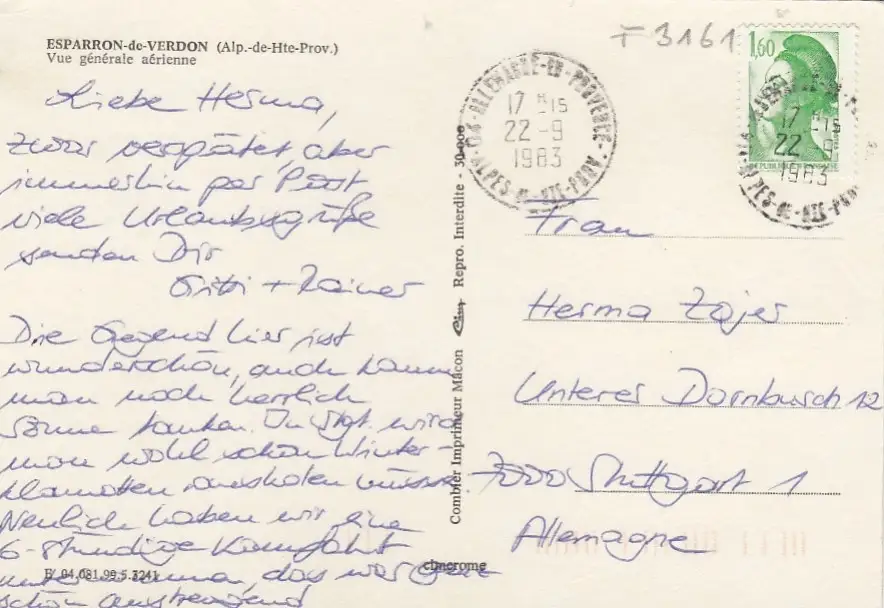 ESPARRON-de-VERDON (Alp.-de-Hte-Prov.)
Vue générale aérienne
Liebe Herma,
zwar verspätet, aber
immerhin per Post
viele Urlaubsgrüße
senden Dir
+ Rainer
Die Gegend hier ist
wunderschön, auch kann
man noch herrlich
Sonne tanken. In Stgt. wird
man wohl schon Winter-
klamotten rausholen müssen.
Neulich haben wir eine
6-stündige Kanufahrt
unternomma, das war ganz
schön anstrengend
E/ 04.081.99.5.3241
cimcrome
Combier Imprimeur Mâcon Cim Repro. Interdite - 30-000
F 3161
1,60
REPUBLIQUE FRANCAISE
04-ALLEMAGNE-EN-PROVENCE-
17 H 15
22 -9
1983
ALPES-DE-HTE-PROV.
17 H 15
22 -9
1983
ALPES-DE-HTE-PROV
Frau
Herma Zajer
Unterer Dornbusch 12
7000 Stuttgart 1
Allemagne